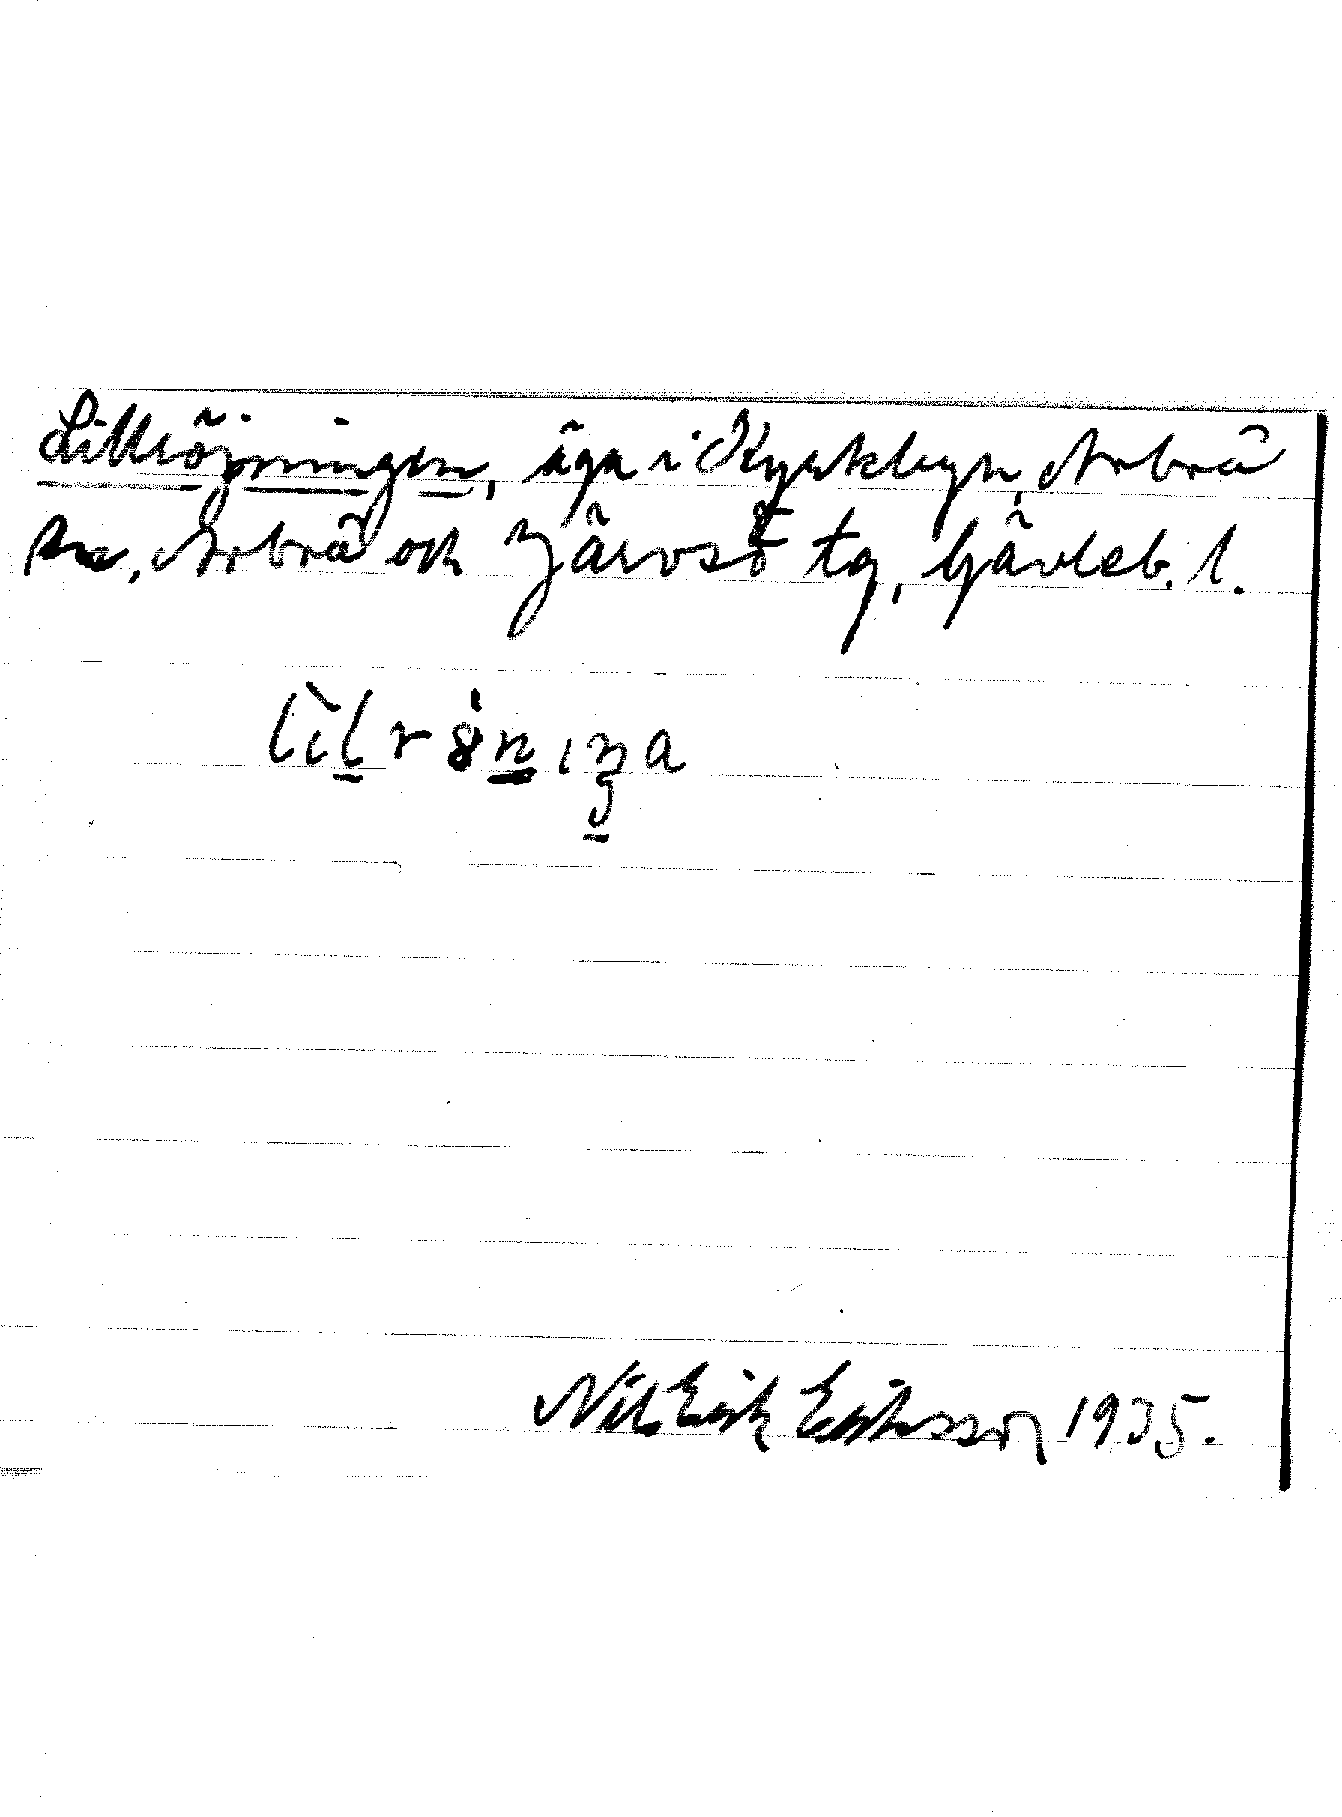 Lillröjningen, äga i Kyrkbyn, Arbrå
sn, Arbrå och Järvsö tg, Gävleb. l.
Nils Erik Eriksson 1935.